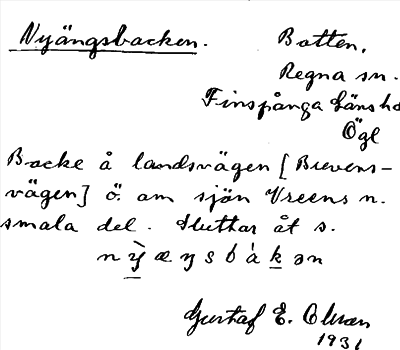 Nyängsbacken. Botten,
Regna sn.
Finspånga länshd
Ögl
Backe å landsvägen [Brevens-
vägen] ö. om sjön Vreens n.
smala del. Sluttar åt s.
nỳæŋsbákən
Gustaf E. Olsson
1931